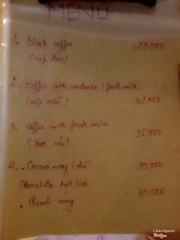 MENU
1. Black coffee 29.000
(cafe đen)
2. coffee with condense / fresh milk
(cafe sữa) 32.000
3. coffee with fresh milk 35.000
(bạc sỉu)
4. Cacao nóng / đá 39.000
Chocolate hot / ice
nóng 30.000